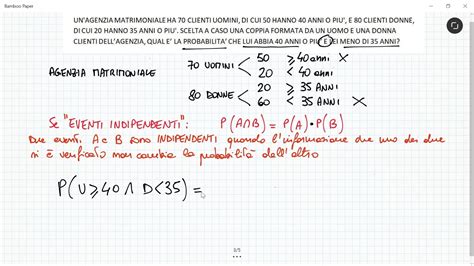 Bamboo Paper
UN'AGENZIA MATRIMONIALE HA 70 CLIENTI UOMINI, DI CUI 50 HANNO 40 ANNI O PIU', E 80 CLIENTI DONNE,
DI CUI 20 HANNO 35 ANNI O PIU'. SCELTA A CASO UNA COPPIA FORMATA DA UN UOMO E UNA DONNA
CLIENTI DELL'AGENZIA, QUAL E' LA PROBABILITA' CHE LUI ABBIA 40 ANNI O PIU' E LEI MENO DI 35 ANNI?
AGENZIA MATRIMONIALE
70 UOMINI < 50 ⩾ 40 anni X
20 < 40 anni
80 DONNE < 20 ⩾ 35 ANNI
60 < 35 ANNI X
Se "EVENTI INDIPENDENTI": P(A∩B) = P(A) · P(B)
Due eventi A e B sono INDIPENDENTI quando l'informazione che uno dei due
si è verificato non cambia la probabilità dell'altro
P(U⩾40 ∧ D<35) =